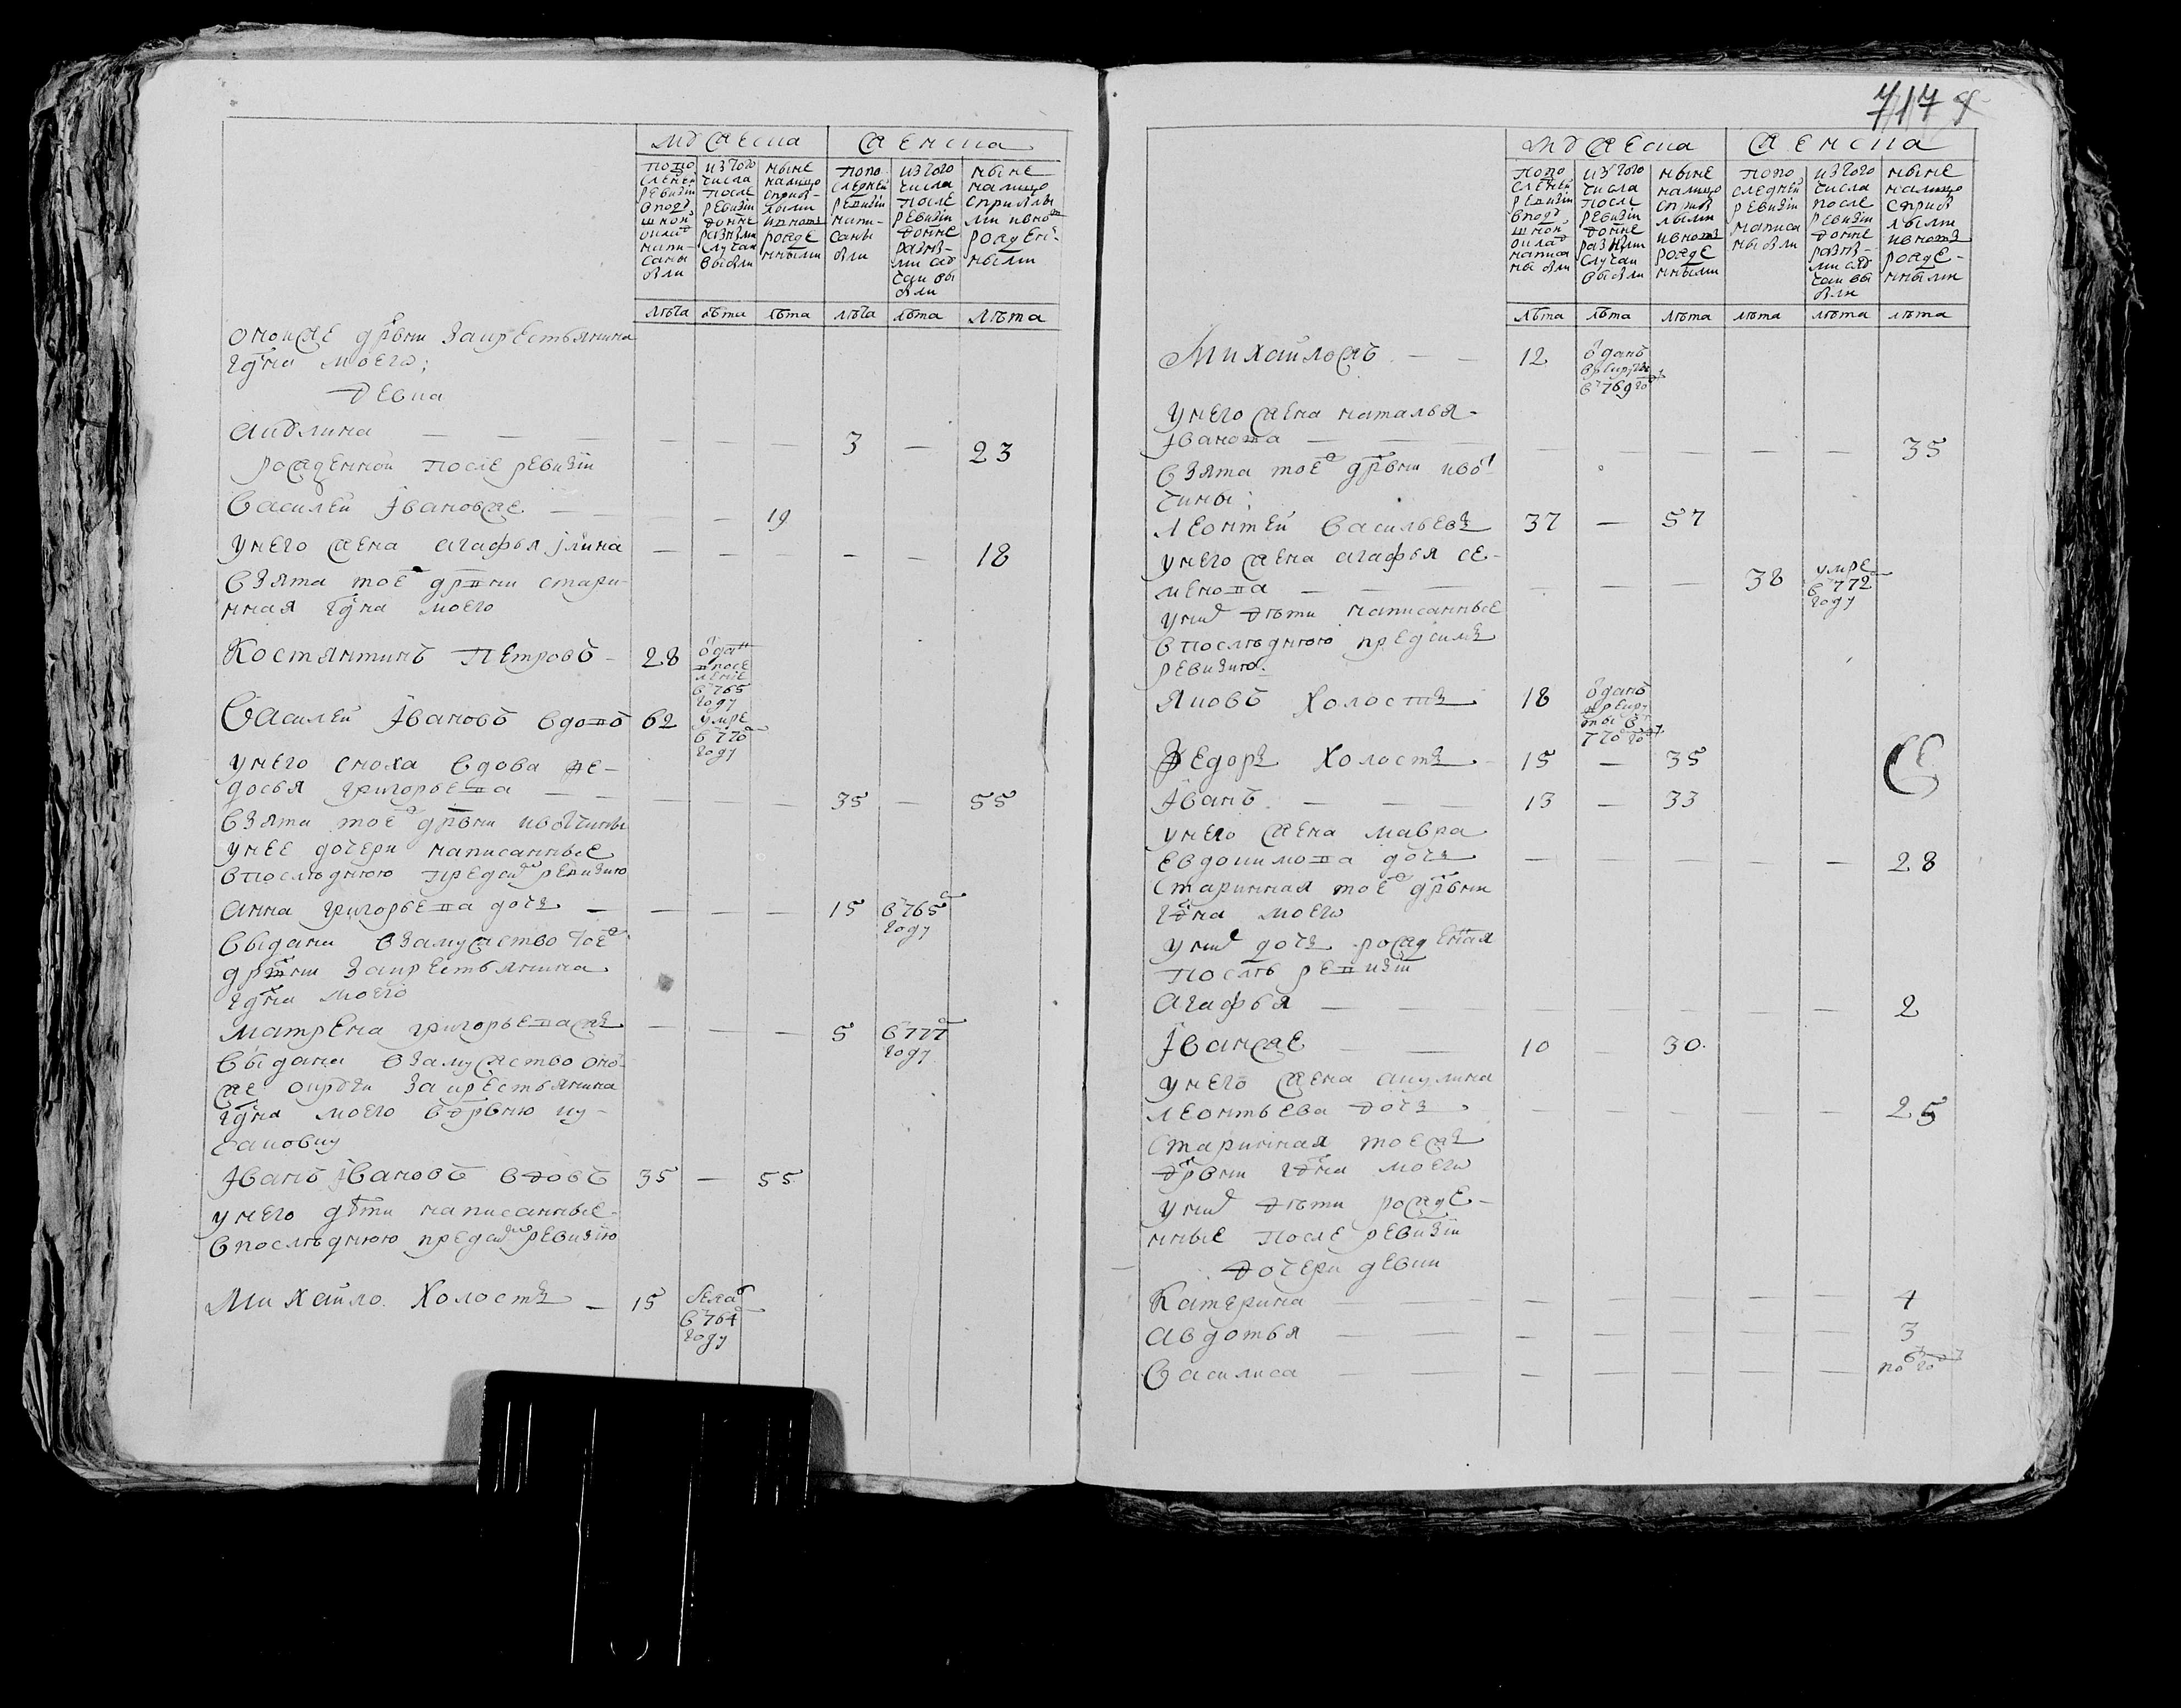 717
мужеска
женска
по по
следней
ревизiи
в поду
шной
оклад
напи-
саны
были
из того
числа
после
ревизiи
до ныне
разными
случаи
выбыли
ныне
налицо
с прибы-
лыми
и вновь
рожде
нными
по по
следней
ревизiи
напи-
саны
были
из того
числа
после
ревизiи
до ныне
разны-
ми слу
чаи вы
были
ныне
налицо
с прибылы
ми и вновь
рожден-
ными
лета
лѣта
лѣта
лѣта
лѣта
лѣта
оной же дрвни за крестьянина
гдна моего;
девка
Акулина — — — — — — 3 — 23
рожденной после ревизiи
Василей Iвановже — — — 19
у него жена Агафья Iлина — — — — — 18
взята тоеж дрвни стари-
нная гдна моего
Костянтинъ Петровъ - 28
отдан
в посе
ление
в 765
году
Василей Iвановъ вдовъ 62
умре
в 770
году
у него сноха вдова Фе-
досья Григорьева — — — — — 35 — 55
взята тоеж дрвни и вотчины
у нее дочери написанные
в последнюю пред сим ревизию
Анна Григорьева дочь — — — — 15 в 765
году
выдана в замужство тоеж
дрвни за крестьянина
гдна моего
Матрена Григорьева ж — — — 5 в 777
году
выдана в замужство оно-
же округи за крестьянина
гдна моего в дрвню
Iванъ Iвановъ вдовъ 35 — 55
у него дѣти написанные
в послѣднюю пред сим ревизiю
Михайло холостъ — 15
бежал
в 764
году
мужеска
женска
по по
следней
ревизiи
в поду
шной
оклад
написа
ны были
из того
числа
после
ревизiи
до ныне
разными
случаи
выбыли
ныне
налицо
с прибы
лыми
и вновь
рожде
нными
по по
следней
ревизiи
написа
ны были
из того
числа
после
ревизiи
до ныне
разны-
ми слу
чаи вы
были
ныне
налицо
с прибы
лыми
и вновь
рожде-
нными
лѣта
лѣта
лѣта
лѣта
лѣта
лѣта
Михайложъ — — 12
отданъ
в рекруты
в 769 году
у него жена Наталья
Iванова — — — — — — 35
взята тоеж дрвни и вот
чины;
Леонтей Васильевъ 37 — 57
у него жена Агафья Се-
менова — — — — — 38
умре
в 772
году
у них дѣти написанные
в послѣднюю пред симъ
ревизию
Яковъ холостъ 18
отданъ
в рекру
ты в
770 году
Федоръ холостъ 15 — 35
Iванъ — — — 13 — 33
у него жена Мавра
Евдокимова дочь — — — — — 28
старинная тоеж дрвни
гдна моего
у них дочь рожденная
послѣ ревизiи
Агафья — — — — — — — 2
Iванже — — 10 30
у него жена Акулина
Леонтьева дочь — — — — — 25
старинная тоежъ
дрвни гдна моего
у них дѣти рожде-
нные после ревизiи
дочери девки
Катерина — — — — — — — 4
Авдотья — — — — — — — 3
Василиса — — — — — — —